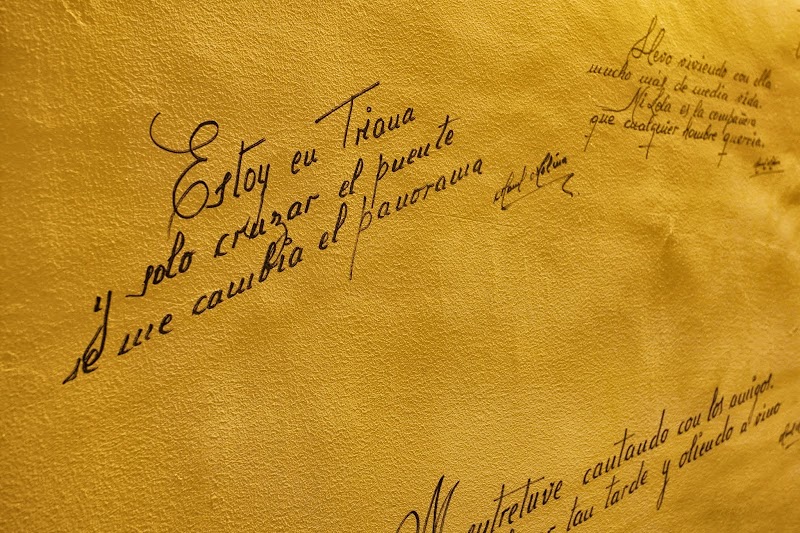 Estoy en Triana
y solo cruzar el puente
se me cambia el panorama
Llevo viviendo con ella
mucho más de media vida.
Mi Lola es la compañera
que cualquier hombre querría.
M entretuve cantando con los amigos.
tan tarde y oliendo a vino